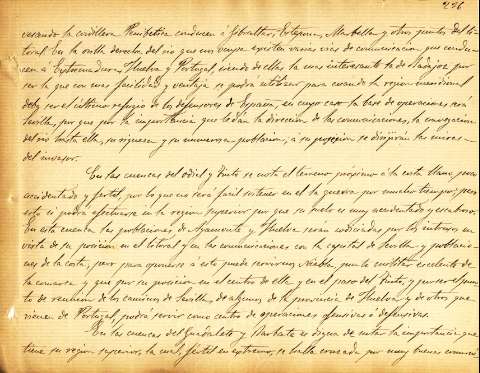 226
versando la cordillera Penibética conducen á Gibraltar, Estepona, Marbella y otros puntos del li-
toral. En la orilla derecha del río que nos ocupa existen varias vias de comunicación que conduc-
cen á Extremadura, Huelva y Portugal, siendo de ellas la mas interesante la de Badajoz por
ser la que con mas facilidad y ventaja se podrá utilizar para cuando la region meridional
deba ser el último refugio de los defensores de España, en cuyo caso la base de operaciones será
Sevilla, por que por la importancia que le dan la dirección de las comunicaciones, la navegación
del rio hasta ella, su riqueza y su numerosa poblacion, á su posesión se dirijirán las miras
del invasor.
En las cuencas del Odiel y Tinto se nota el terreno próximo á la costa llano, poco
accidentado y fertil, por lo que no será facil sostener en el la guerra por mucho tiempo; pues
esto se podrá efectuar en la region superior por que su suelo es muy accidentado y escabroso.
En esta cuenca las poblaciones de Ayamonte y Huelva serán codiciadas por los intrusos en
vista de su posicion en el litoral y en las comunicaciones con la capital de Sevilla y poblacio-
nes de la costa, pero para oponerse á esto puede servirnos Niebla por la ventaja escelente de
la comarca y que por su posicion en el centro de ella y en el paso del Tinto, y por ser el pun-
to de reunion de los caminos de Sevilla, de algunos de la provincia de Huelva y de otros que
vienen de Portugal, podrá servir como centro de operaciones ofensivas ó defensivas.
En las cuencas del Guadalete y Barbate es digna de notar la importancia que
tiene su region superior, la cual, fértil en extremo, se halla cruzada por muy buenas comuni-